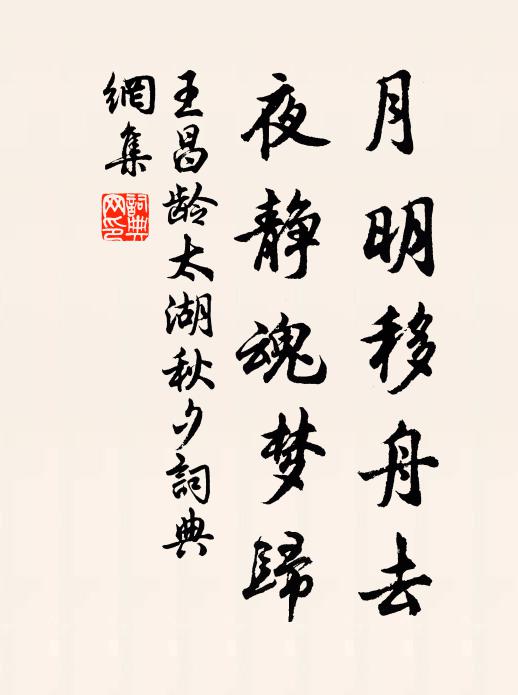 月明移舟去
夜静魂梦歸
王昌龄太湖秋夕詞典
網集
詞典
网印